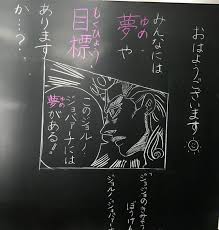 おはようございます
みんなには
夢や
ゆめ
目標
もくひょう
あります
か…?
このジョルノ・
ジョバァーナには
夢がある!
ゆめ
ジョジョのきみょうな
ぼうけん
ジョルノ・ジョバァーナ